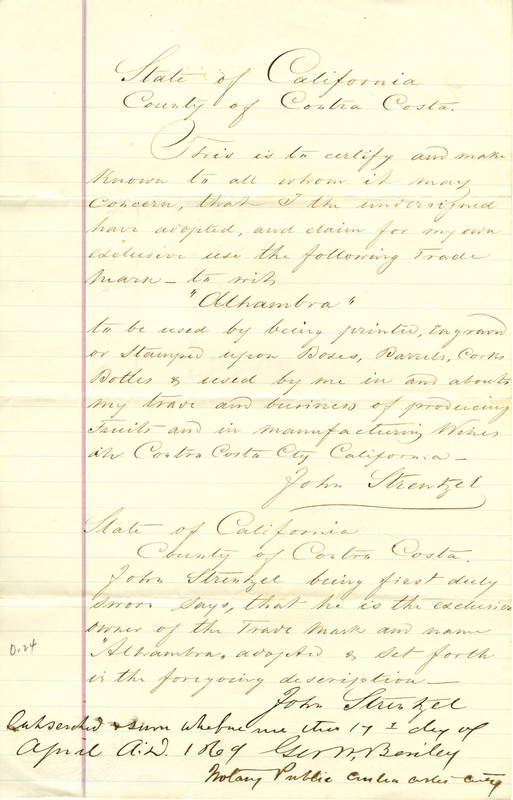 State of California
County of Contra Costa.
This is to certify and make
known to all whom it may
concern, that I the undersigned
have adopted, and claim for my own
exclusive use the following Trade
Mark – to wit
"Alhambra"
to be used by being printed, Engraved
or Stamped upon Boxes, Barrels, Corks
Bottles & used by me in and about
my trade and business of producing
Fruits and in manufacturing Wines
in Contra Costa Cty California –
John Strentzel
State of California
County of Contra Costa.
John Strentzel being first duly
sworn says, that he is the exclusive
owner of the Trade Mark and name
"Alhambra" adopted & set forth
in the foregoing description –
John Strentzel
Subscribed & sworn before me this 17th day of
April A.D. 1869 Geo W. Bailey
Notary Public Contra Costa County
0.24